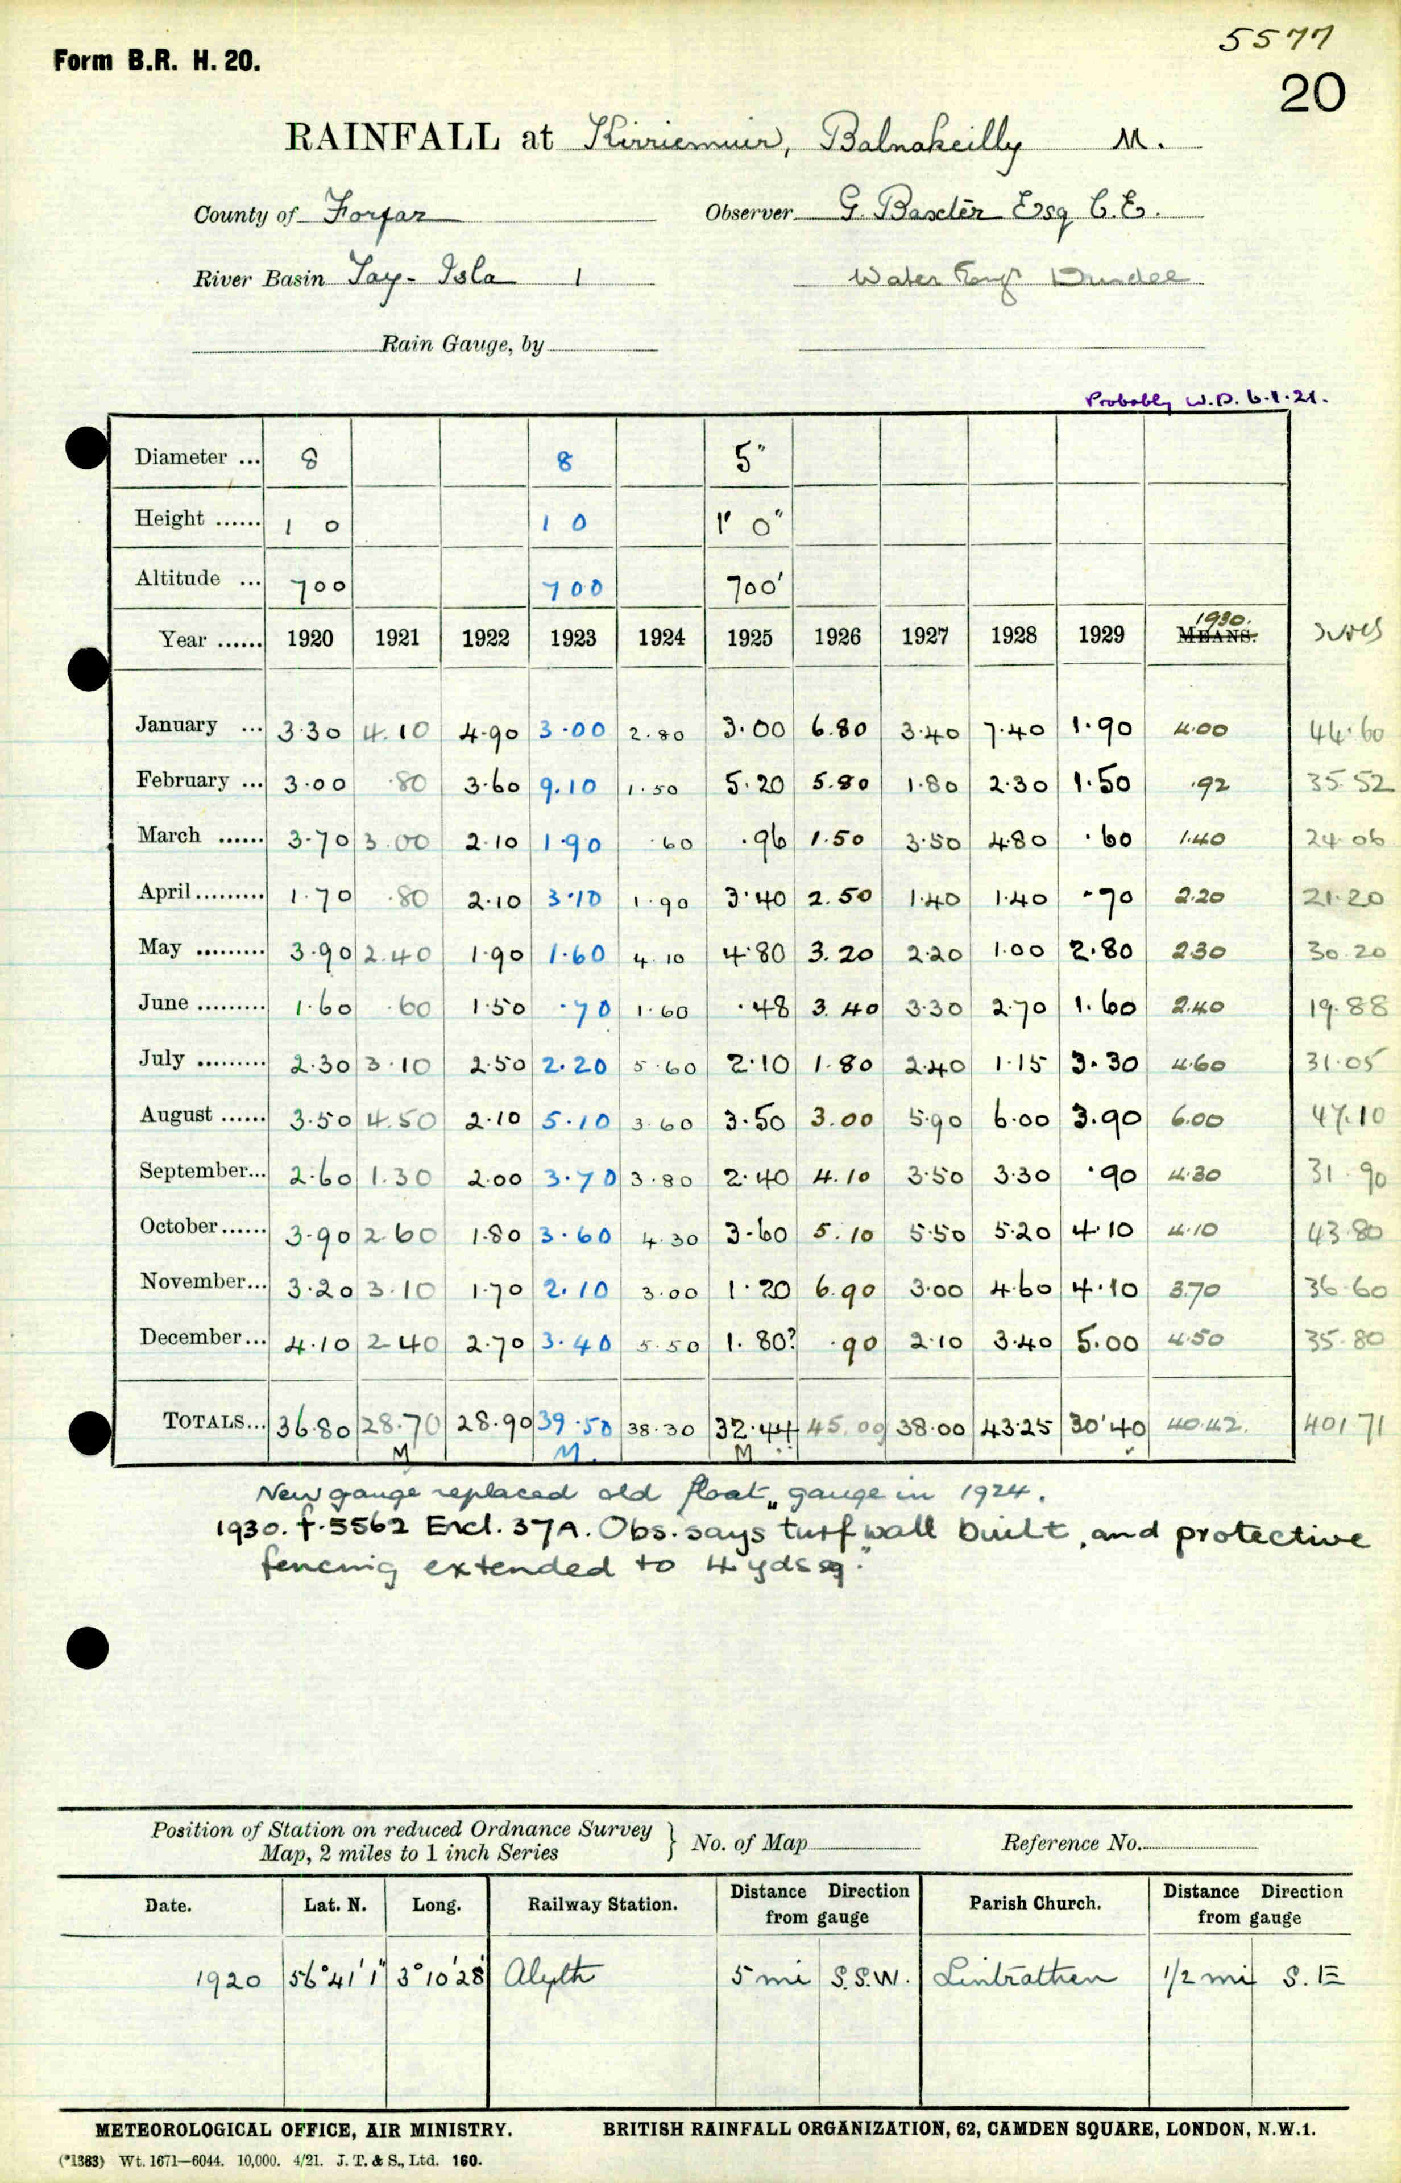 5577
Form B.R. H. 20.
20
RAINFALL at Kirriemuir, Balnakeilly M.
County of Forfar Observer G. Baxter Esq C.E.
River Basin Tay - Isla 1 Water Engr Dundee
Rain Gauge, by
Probably W.D. 6.1.21.
Diameter ... 8 8 5"
Height ...... 1 0 1 0 1' 0"
Altitude ... 700 700 700'
1930.
Year ...... 1920 1921 1922 1923 1924 1925 1926 1927 1928 1929 MEANS.
January ... 3.30 4.10 4.90 3.00 2.80 3.00 6.80 3.40 7.40 1.90 4.00 44.60
February ... 3.00 .80 3.60 9.10 1.50 5.20 5.80 1.80 2.30 1.50 .92 35.52
March ...... 3.70 3.00 2.10 1.90 .60 .96 1.50 3.50 4.80 .60 1.40 24.06
April ......... 1.70 .80 2.10 3.10 1.90 3.40 2.50 1.40 1.40 .70 2.20 21.20
May ......... 3.90 2.40 1.90 1.60 4.10 4.80 3.20 2.20 1.00 2.80 2.30 30.20
June ......... 1.60 .60 1.50 .70 1.60 .48 3.40 3.30 2.70 1.60 2.40 19.88
July ......... 2.30 3.10 2.50 2.20 5.60 2.10 1.80 2.40 1.15 3.30 4.60 31.05
August ...... 3.50 4.50 2.10 5.10 3.60 3.50 3.00 5.90 6.00 3.90 6.00 47.10
September... 2.60 1.30 2.00 3.70 3.80 2.40 4.10 3.50 3.30 .90 4.30 31.90
October...... 3.90 2.60 1.80 3.60 4.30 3.60 5.10 5.50 5.20 4.10 4.10 43.80
November... 3.20 3.10 1.70 2.10 3.00 1.20 6.90 3.00 4.60 4.10 3.70 36.60
December... 4.10 2.40 2.70 3.40 5.50 1.80? .90 2.10 3.40 5.00 4.50 35.80
TOTALS... 36.80 28.70 28.90 39.50 38.30 32.44 45.00 38.00 43.25 30.40 40.42 401 71
M M. M
New gauge replaced old float gauge in 1924.
1930. f.5562 Encl. 37A. Obs. says "turf wall built, and protective
fencing extended to 4 yds sq."
Position of Station on reduced Ordnance Survey
Map, 2 miles to 1 inch Series } No. of Map Reference No.
Date. Lat. N. Long. Railway Station. Distance Direction from gauge Parish Church. Distance Direction from gauge
1920 56°41'1" 3°10'28" Alyth 5 mi S.S.W. Lintrathen 1/2 mi S. E
METEOROLOGICAL OFFICE, AIR MINISTRY. BRITISH RAINFALL ORGANIZATION, 62, CAMDEN SQUARE, LONDON, N.W.1.
(*1383) Wt. 1671—6044. 10,000. 4/21. J. T. & S., Ltd. 160.